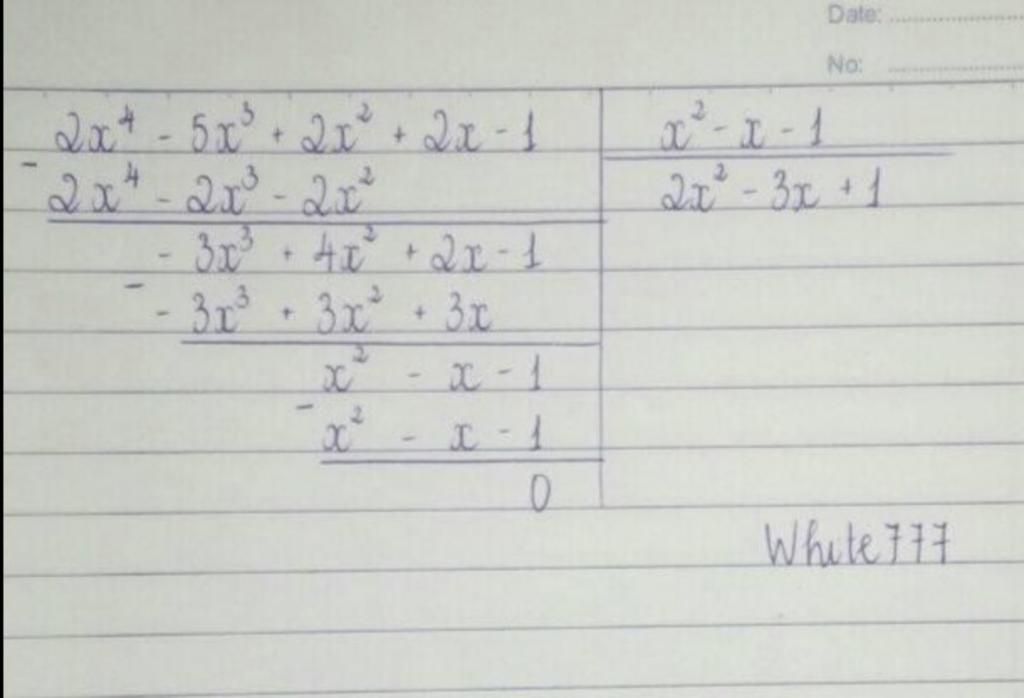 Date:
No:
2x⁴ - 5x³ + 2x² + 2x - 1 | x² - x - 1
- 2x⁴ - 2x³ - 2x² | 2x² - 3x + 1
- 3x³ + 4x² + 2x - 1
- - 3x³ + 3x² + 3x
x² - x - 1
- x² - x - 1
0
White777